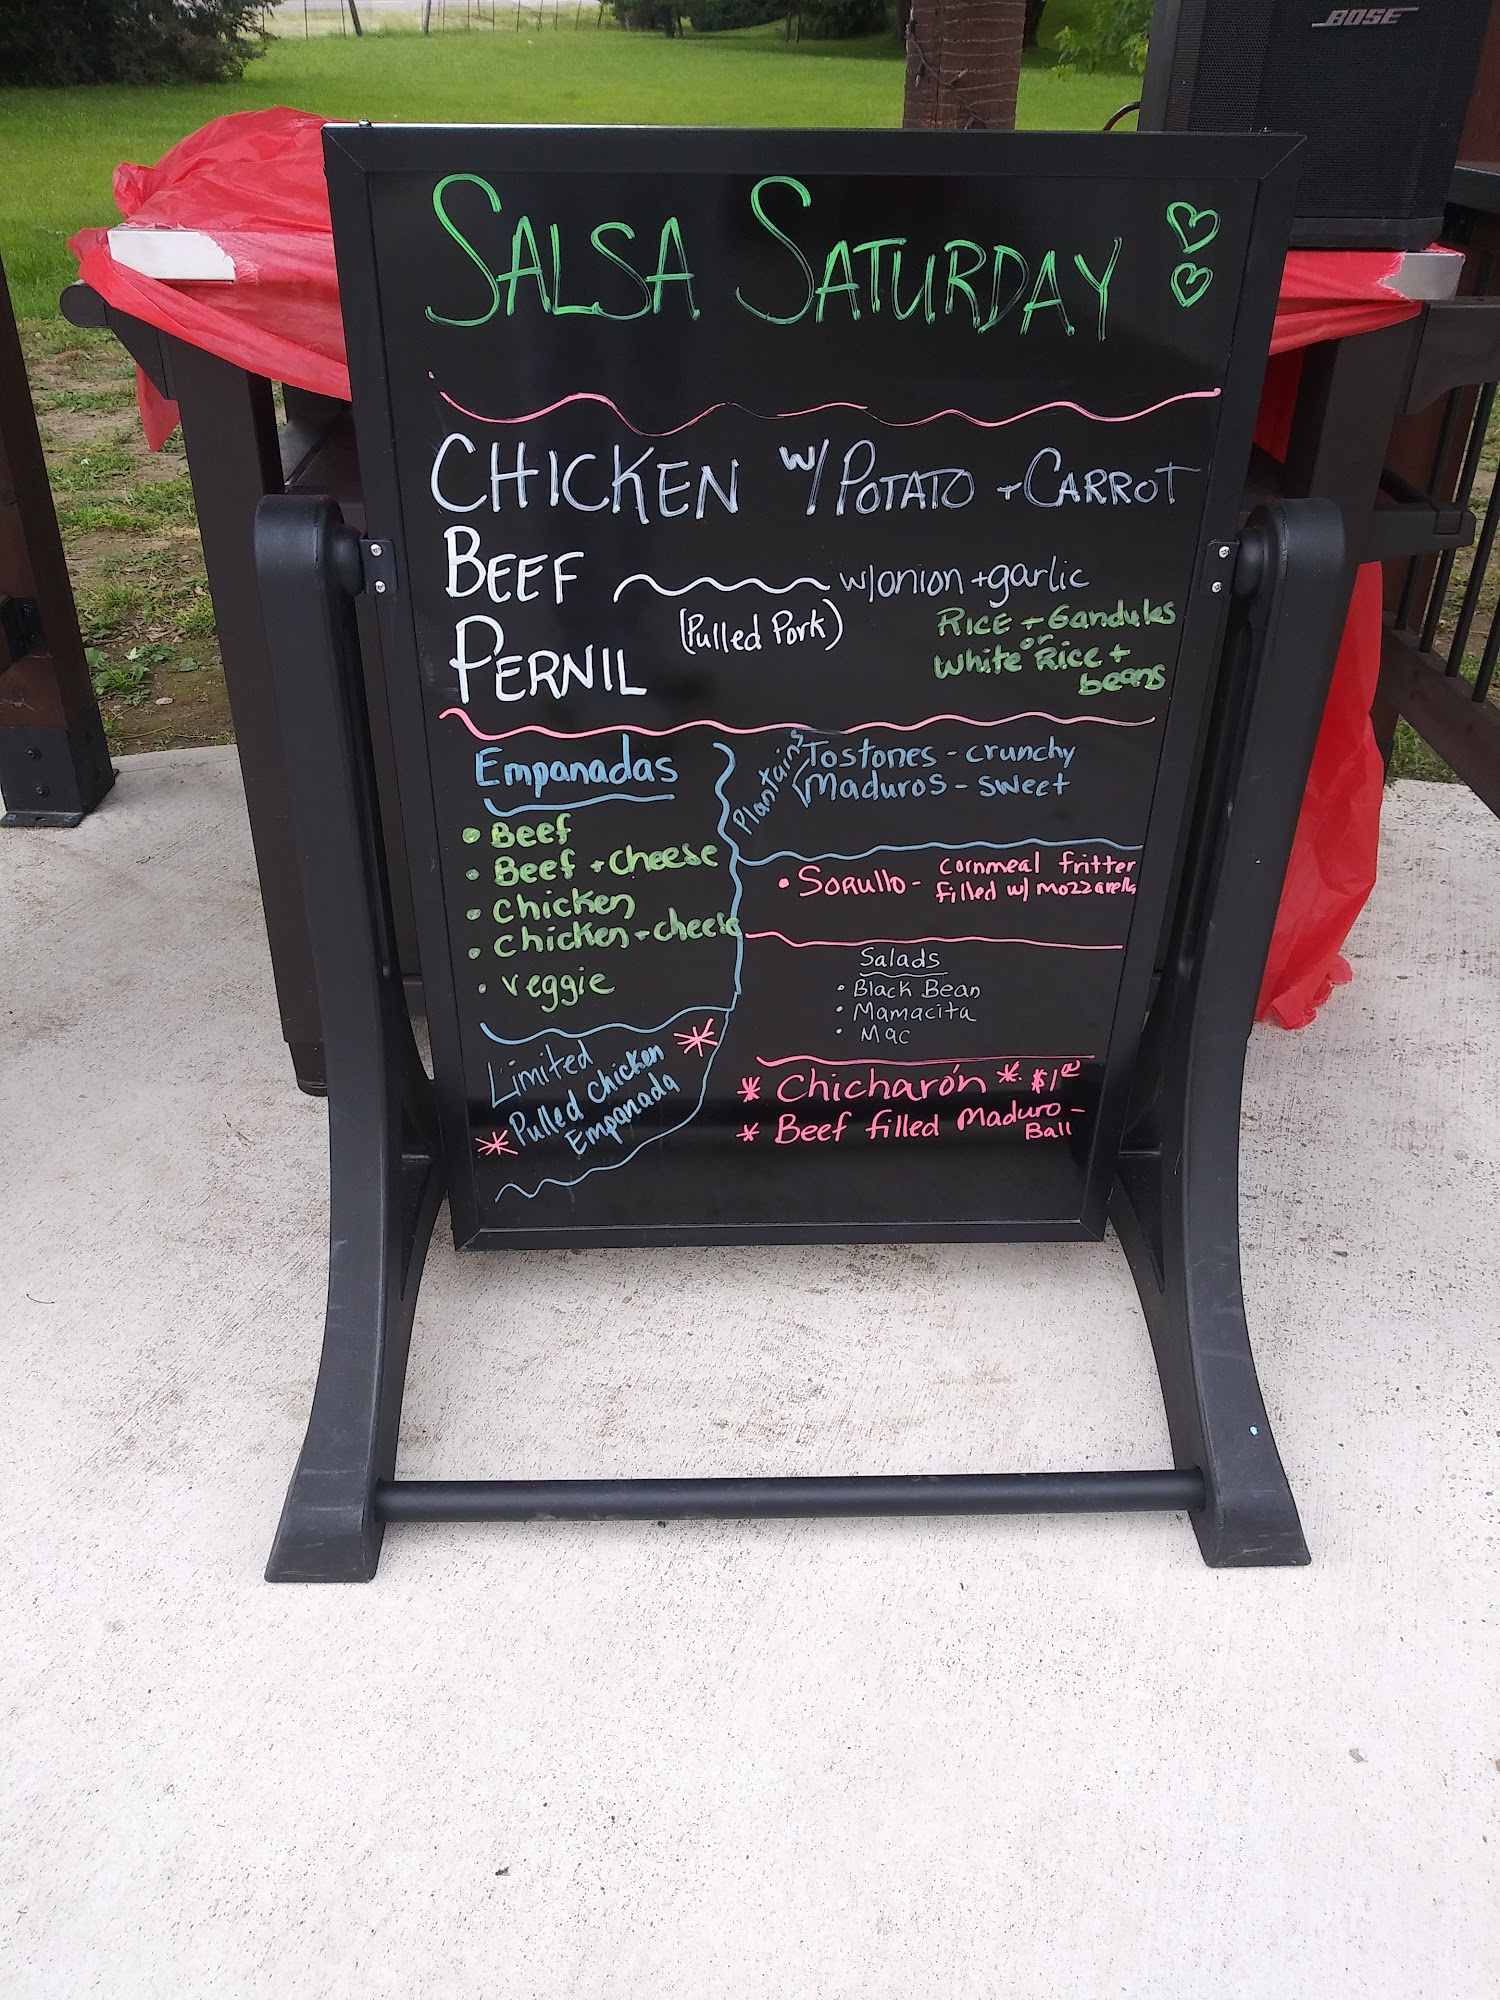 BOSE
SALSA SATURDAY
CHICKEN w/ POTATO + CARROT
BEEF w/onion + garlic
PERNIL (Pulled Pork)
RICE + Gandules
or
White Rice +
beans
Empanadas
• Beef
• Beef + cheese
• chicken
• chicken + cheese
• veggie
Limited
* Pulled Chicken *
Empanada
Plantains
Tostones - crunchy
Maduros - sweet
• Sorullo - cornmeal fritter
filled w/ mozzarella
Salads
• Black Bean
• Mamacita
• Mac
* Chicharón * $1.00
* Beef filled Maduro -
Ball